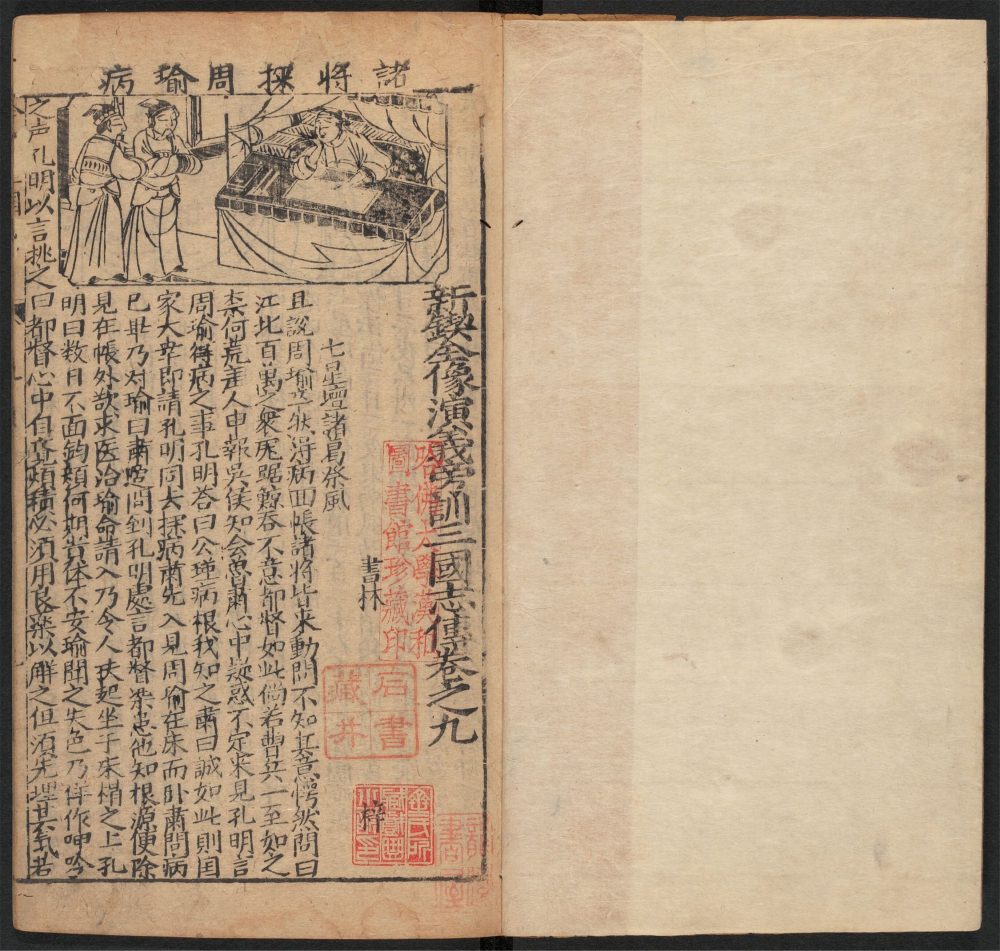 諸將探周瑜病
新鍥全像演義旁訓三國志傳卷之九
書林
梓
七星壇諸葛祭風
且說周瑜忽然得病回帳諸將皆來動問不知其意愕然問曰
江北百萬之衆虎踞鯨吞不意都督如此倘若曹兵一至如之
柰何荒差人申報吳侯知会魯肅心中疑惑不定來見孔明言
周瑜得病之事孔明答曰公瑾病根我知之肅曰誠如此則国
家大幸即請孔明同去探病肅先入見周瑜在床而卧肅問病
已畢乃对瑜曰肅 問到孔明處言都督染患他知根源便除
見在帳外欲求医治瑜命請入乃令人扶起坐于床榻之上孔
明曰数月不面鈞顏何期貴体不安瑜聞之失色乃佯作呻吟
之声孔明以言挑之曰都督心中自 煩積必須用良藥以解之但須先理其氣若
哈佛大學漢和
圖書館珍藏印
石書
藏井